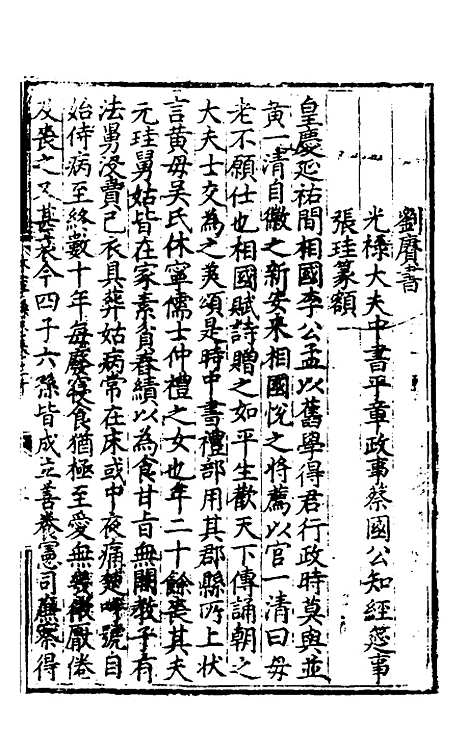 劉賡書
光祿大夫中書平章政事蔡國公知經筵事
張珪篆額
皇慶延祐間相國李公孟以舊學得君行政時莫與並
黃一清自徽之新安來相國悅之將薦以官一清曰母
老不願仕也相國賦詩贈之如平生歡天下傳誦朝之
大夫士交為之美頌是時中書禮部用其郡縣所上狀
言黃母吳氏休寧儒士仲禮之女也年二十餘喪其夫
元珪舅姑皆在家素貧舂績以為食甘旨無闕教子有
法舅沒費己衣具葬姑病常在床或中夜痛楚呼號自
始侍病至終數十年每廢寢食猶極至愛無幾微厭倦
及喪之又甚哀今四子六孫皆成立善養憲司廉察得